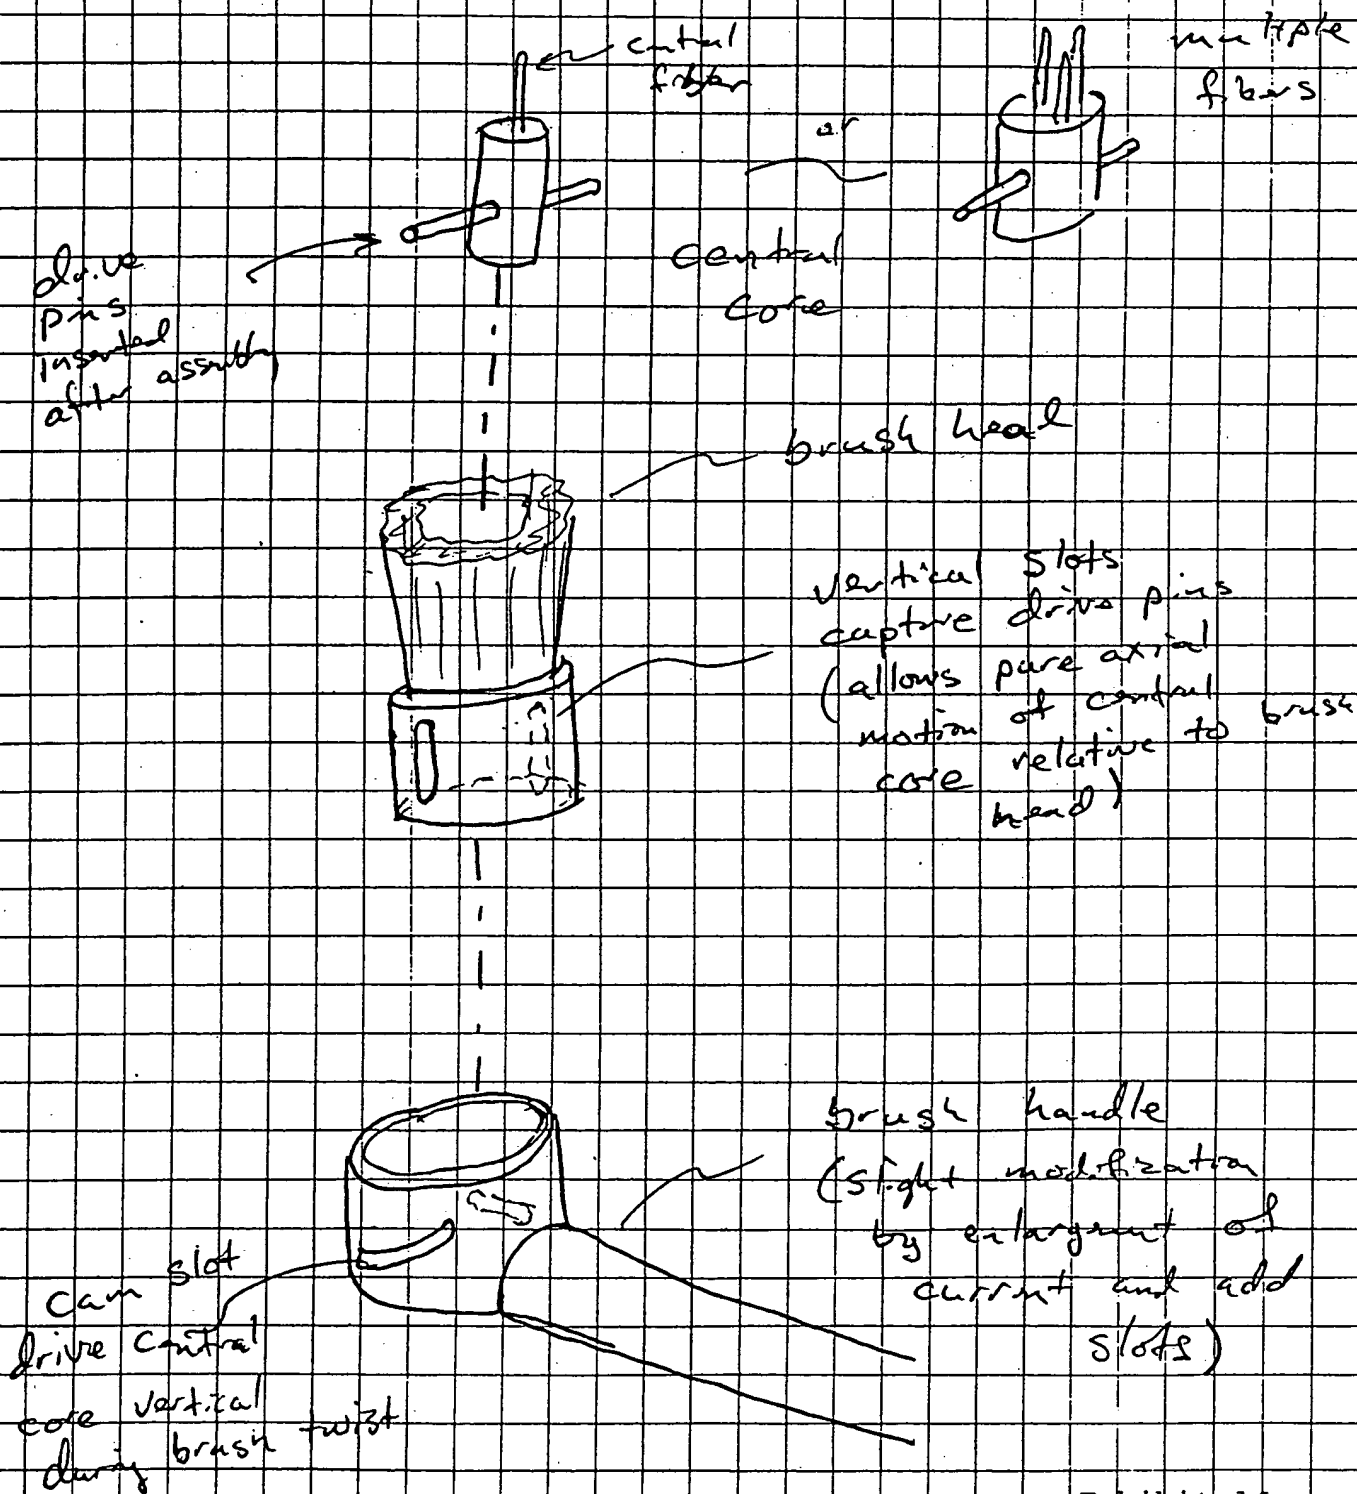 central
fiber
multiple
fibers
or
central
core
drive
pins
inserted
after assembly
brush head
vertical slots
capture drive pins
(allows pure axial
motion of central
core relative to brush
head)
brush handle
(slight modification
by enlargment of
current and add
slots)
cam slot
drive central
core vertical
during brush twist